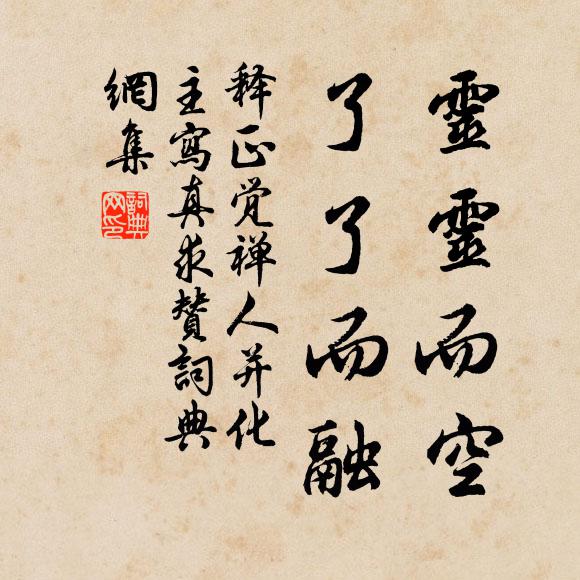 靈靈而空
了了而融
释正觉禅人并化
主寫真求贊詞典
網集
詞典网印